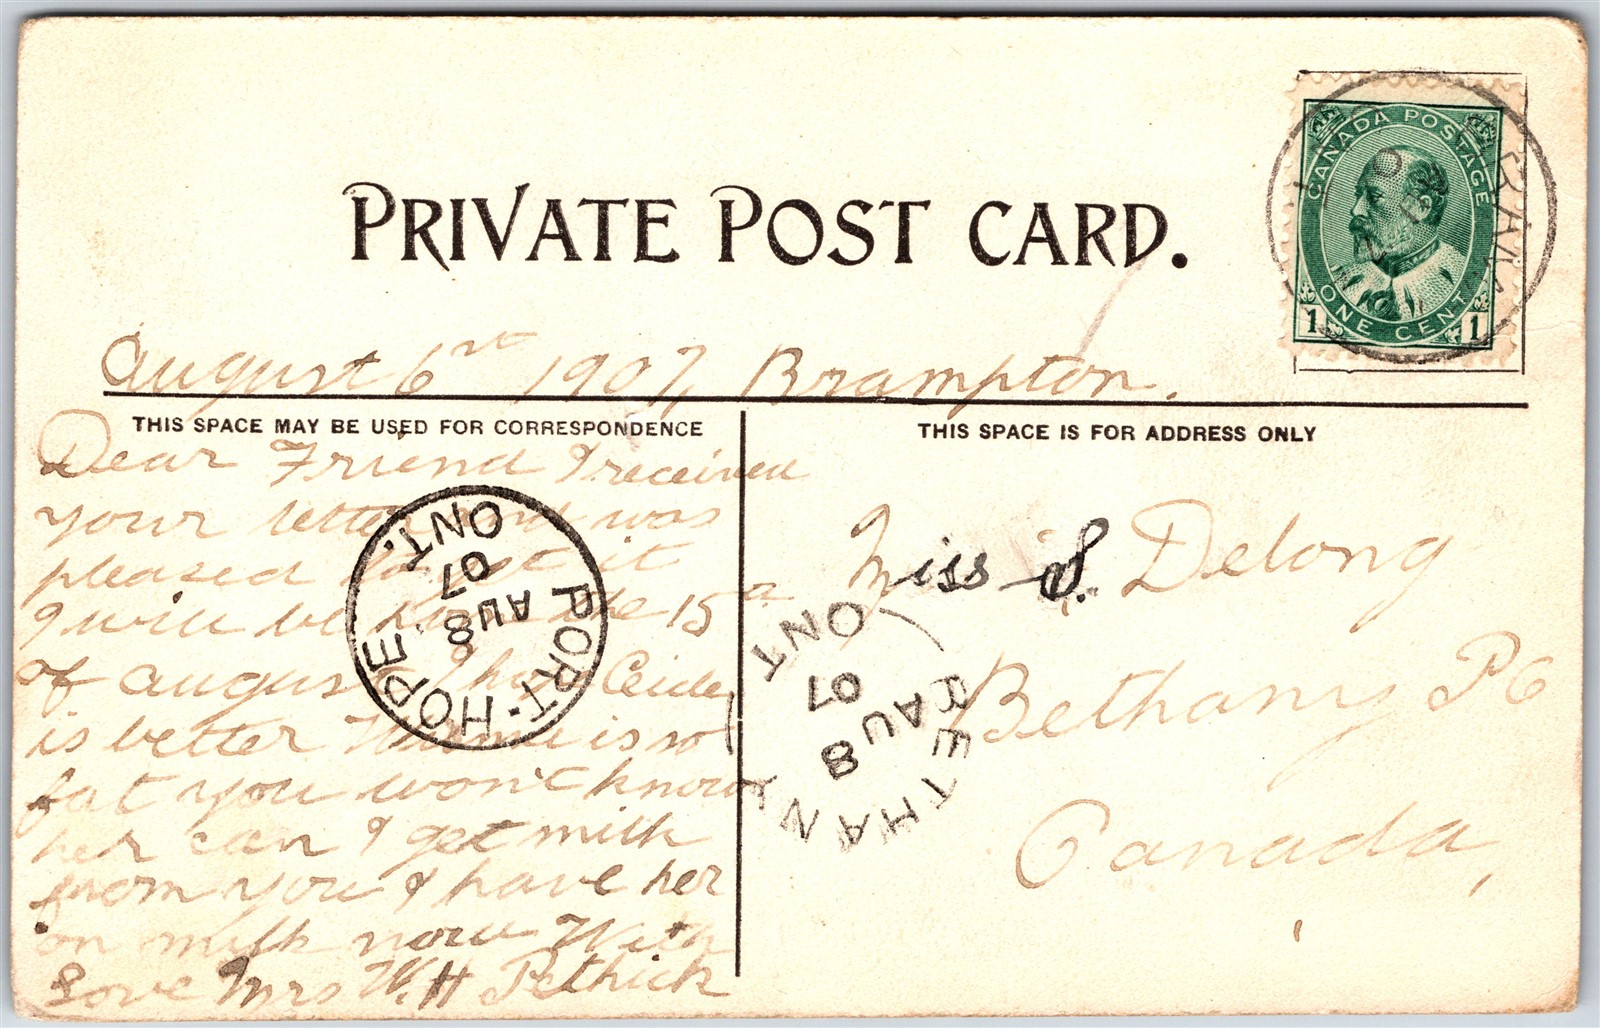 PRIVATE POST CARD.
CANADA POSTAGE
ONE CENT
1 1
August 6 1907, Brampton.
THIS SPACE MAY BE USED FOR CORRESPONDENCE
THIS SPACE IS FOR ADDRESS ONLY
Dear Friend I received
your letter and was
pleased to get it
I will be the 15
of august
is better is so
fat you won't know
her can I get milk
from you I have her
on milk now With
Love Mrs W.H Pethick
PORT-HOPE
AU 8
07
ONT.
Miss S. Delong
Bethany PO
Canada,
BETHANY
AU 8
07
ONT